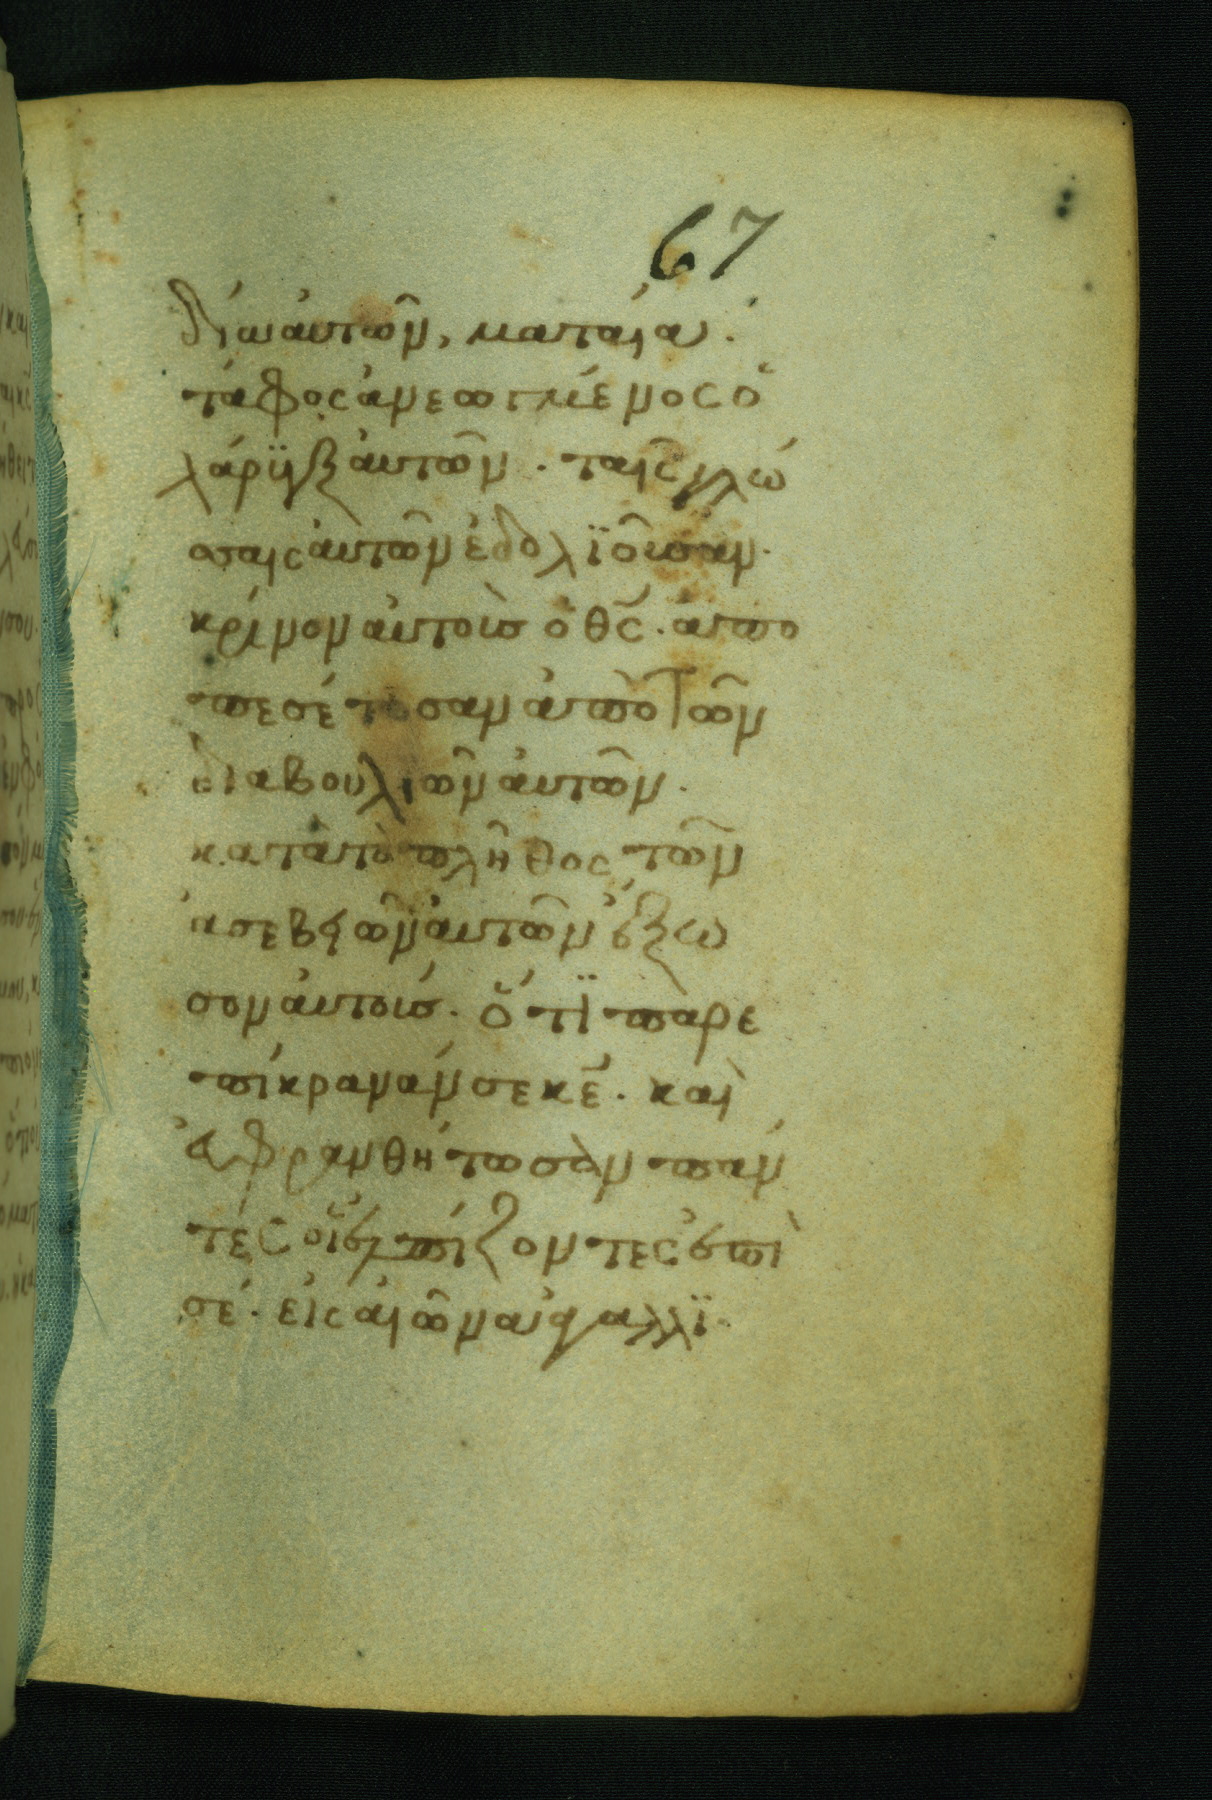 67
δία αυτῶν, ματαία·
τάφος ἀνεωγμένος ὁ
λάρυγξ ἀυτῶν· ταῖς γλώ
σσαις ἀυτῶν ἐδολϊοῦσαν·
κρίνον ἀυτοῖς ὁ θς· ἀπο
πεσέτωσαν ἀπὸ τῶν
διαβουλιῶν ἀυτῶν·
κατὰ τὸ πλῆθος τῶν
ἀσεβειῶν ἀυτῶν ἔξω
σον ἀυτοίς· ὅτϊ παρε
πίκρανάν σε κε· καὶ
ἐυφρανθήτωσαν πάν
τές οἱ ἐλπίζοντες ἐπὶ
σέ· εἰς αἰῶνα ἀγαλλϊ